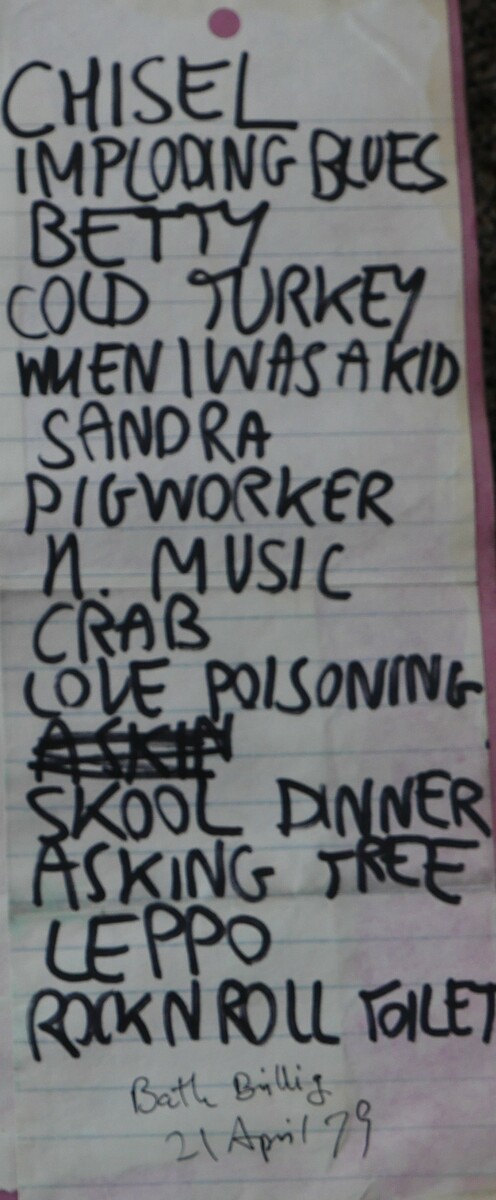 CHISEL
IMPLODING BLUES
BETTY
COLD TURKEY
WHEN I WAS A KID
SANDRA
PIGWORKER
N. MUSIC
CRAB
LOVE POISONING
ASKIN
SKOOL DINNER
ASKING TREE
LEPPO
ROCK N ROLL TOILET
Bath Brillig
21 April 79